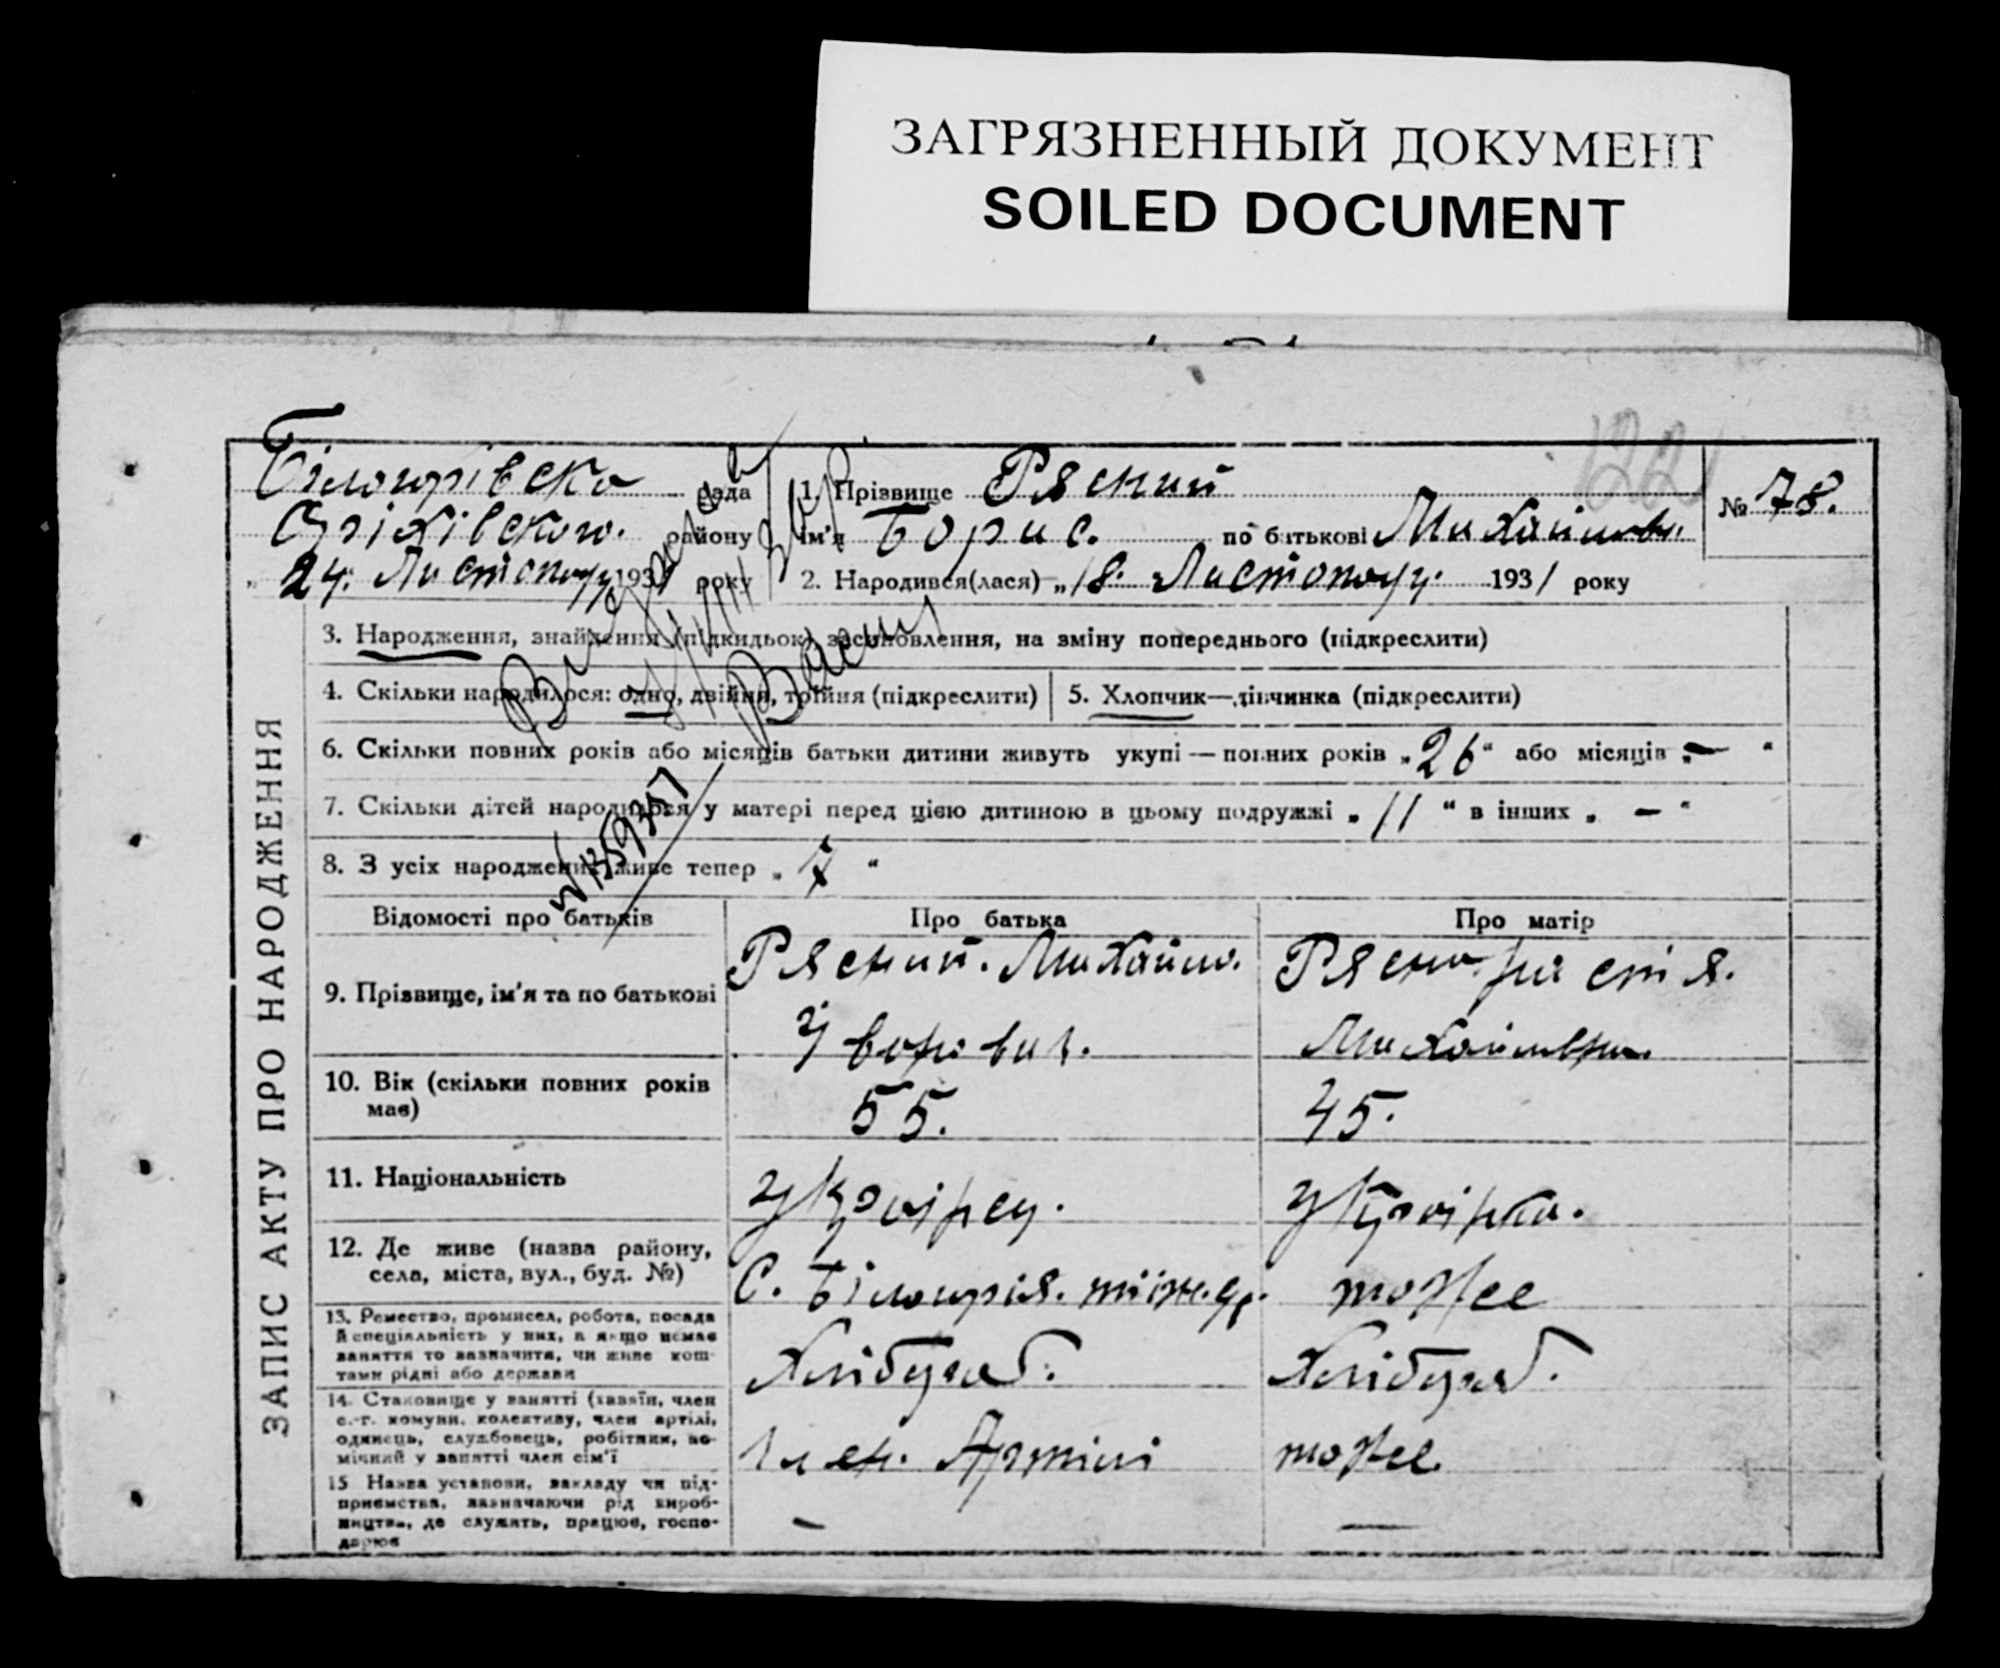 ЗАГРЯЗНЕННЫЙ ДОКУМЕНТ
SOILED DOCUMENT
122
Білогорівська рада
Оріхівського району
" 24. Листопаду 1931 року
1. Прізвище Рясний
ім'я Борис. по батькові Михайлов.
№ 78.
2. Народився(лася) „18. Листопаду. 1931 року
ЗАПИС АКТУ ПРО НАРОДЖЕННЯ
3. Народження, знайдення (підкидьок), засиновлення, на зміну попереднього (підкреслити)
4. Скільки народилося: одно, двійня, трійня (підкреслити)
5. Хлопчик—дівчинка (підкреслити)
6. Скільки повних років або місяців батьки дитини живуть укупі — повних років „26“ або місяців „—“
7. Скільки дітей народилося у матері перед цією дитиною в цьому подружжі „11“ в інших „—“
8. З усіх народжених живе тепер „7“
Відомості про батьків
Про батька
Про матір
9. Прізвище, ім'я та по батькові
Рясний. Михайло.
Рясна
Михайлівна.
10. Вік (скільки повних років має)
55.
45.
11. Національність
Українец.
Українка.
12. Де живе (назва району,
села, міста, вул., буд. №)
С. Білогорія.
тоже
13. Ремество, промисел, робота, посада
й спеціальність у них, а якщо немає
заняття то зазначити, чи живе кош-
тами рідні або держави
Хлібороб.
Хлібороб.
14. Становище у занятті (хазяїн, член
с.-г. комуни, колективу, член артілі,
одинець, службовець, робітник, по-
мічний у занятті член сім'ї
Член. Артілі
тоже.
15 Назва установи, закладу чи під-
приємства, зазначаючи рід вироб-
ництва, де служить, працює, госпо-
дарює
—
—